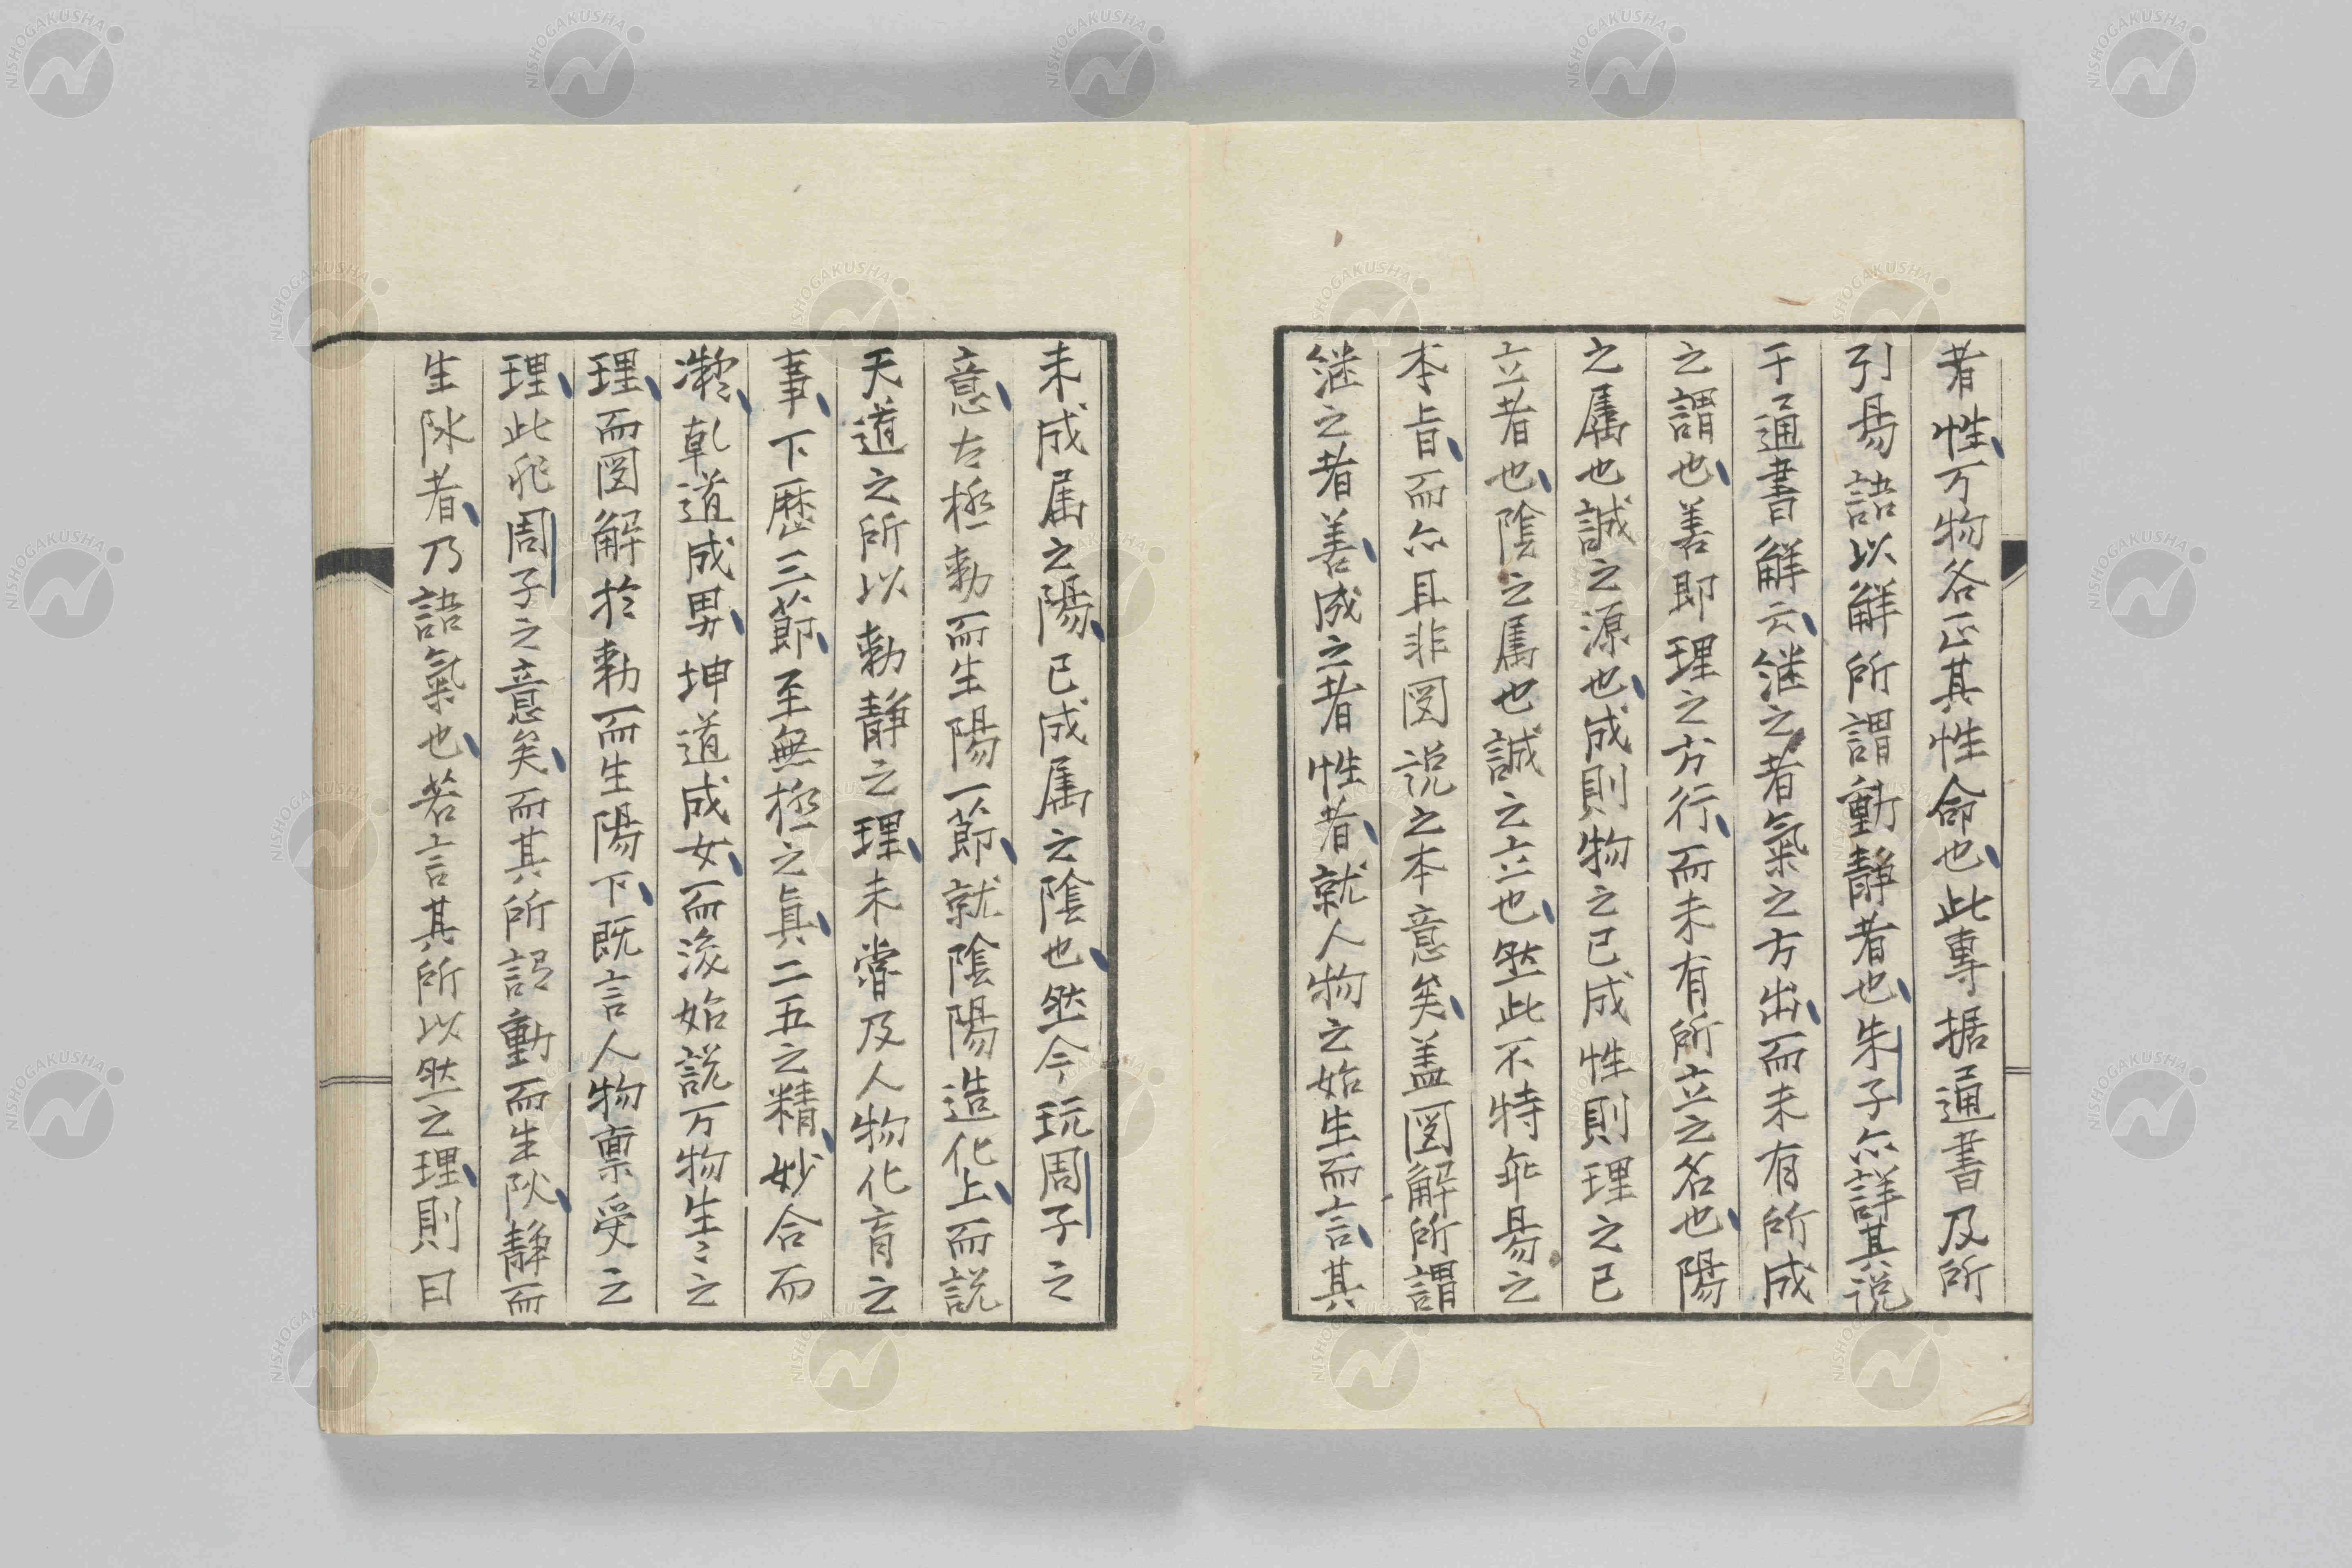 者性、万物各正其性命也、此專据通書及所
引易語以解所謂動靜者也、朱子亦詳其説
于通書解云、継之者氣之方出、而未有所成
之謂也、善即理之方行、而未有所立之名也、陽
之属也誠之源也、成則物之已成性則理之已
立者也、陰之属也誠之立也、然此不特乖易之
本旨、而亦且非図説之本意矣、盖図解所謂
継之者善、成之者性者、就人物之始生而言、其
未成属之陽、已成属之陰也、然今玩周子之
意、太極動而生陽一節、就陰陽造化上、而説
天道之所以動靜之理、未嘗及人物化育之
事、下歴三節、至無極之眞、二五之精、妙合而
凝、乾道成男、坤道成女、而後始説万物生〻之
理、而図解於動而生陽下、既言人物禀受之
理、此非周子之意矣、而其所謂動而生阦、靜而
生阥者、乃語氣也、若言其所以然之理、則曰